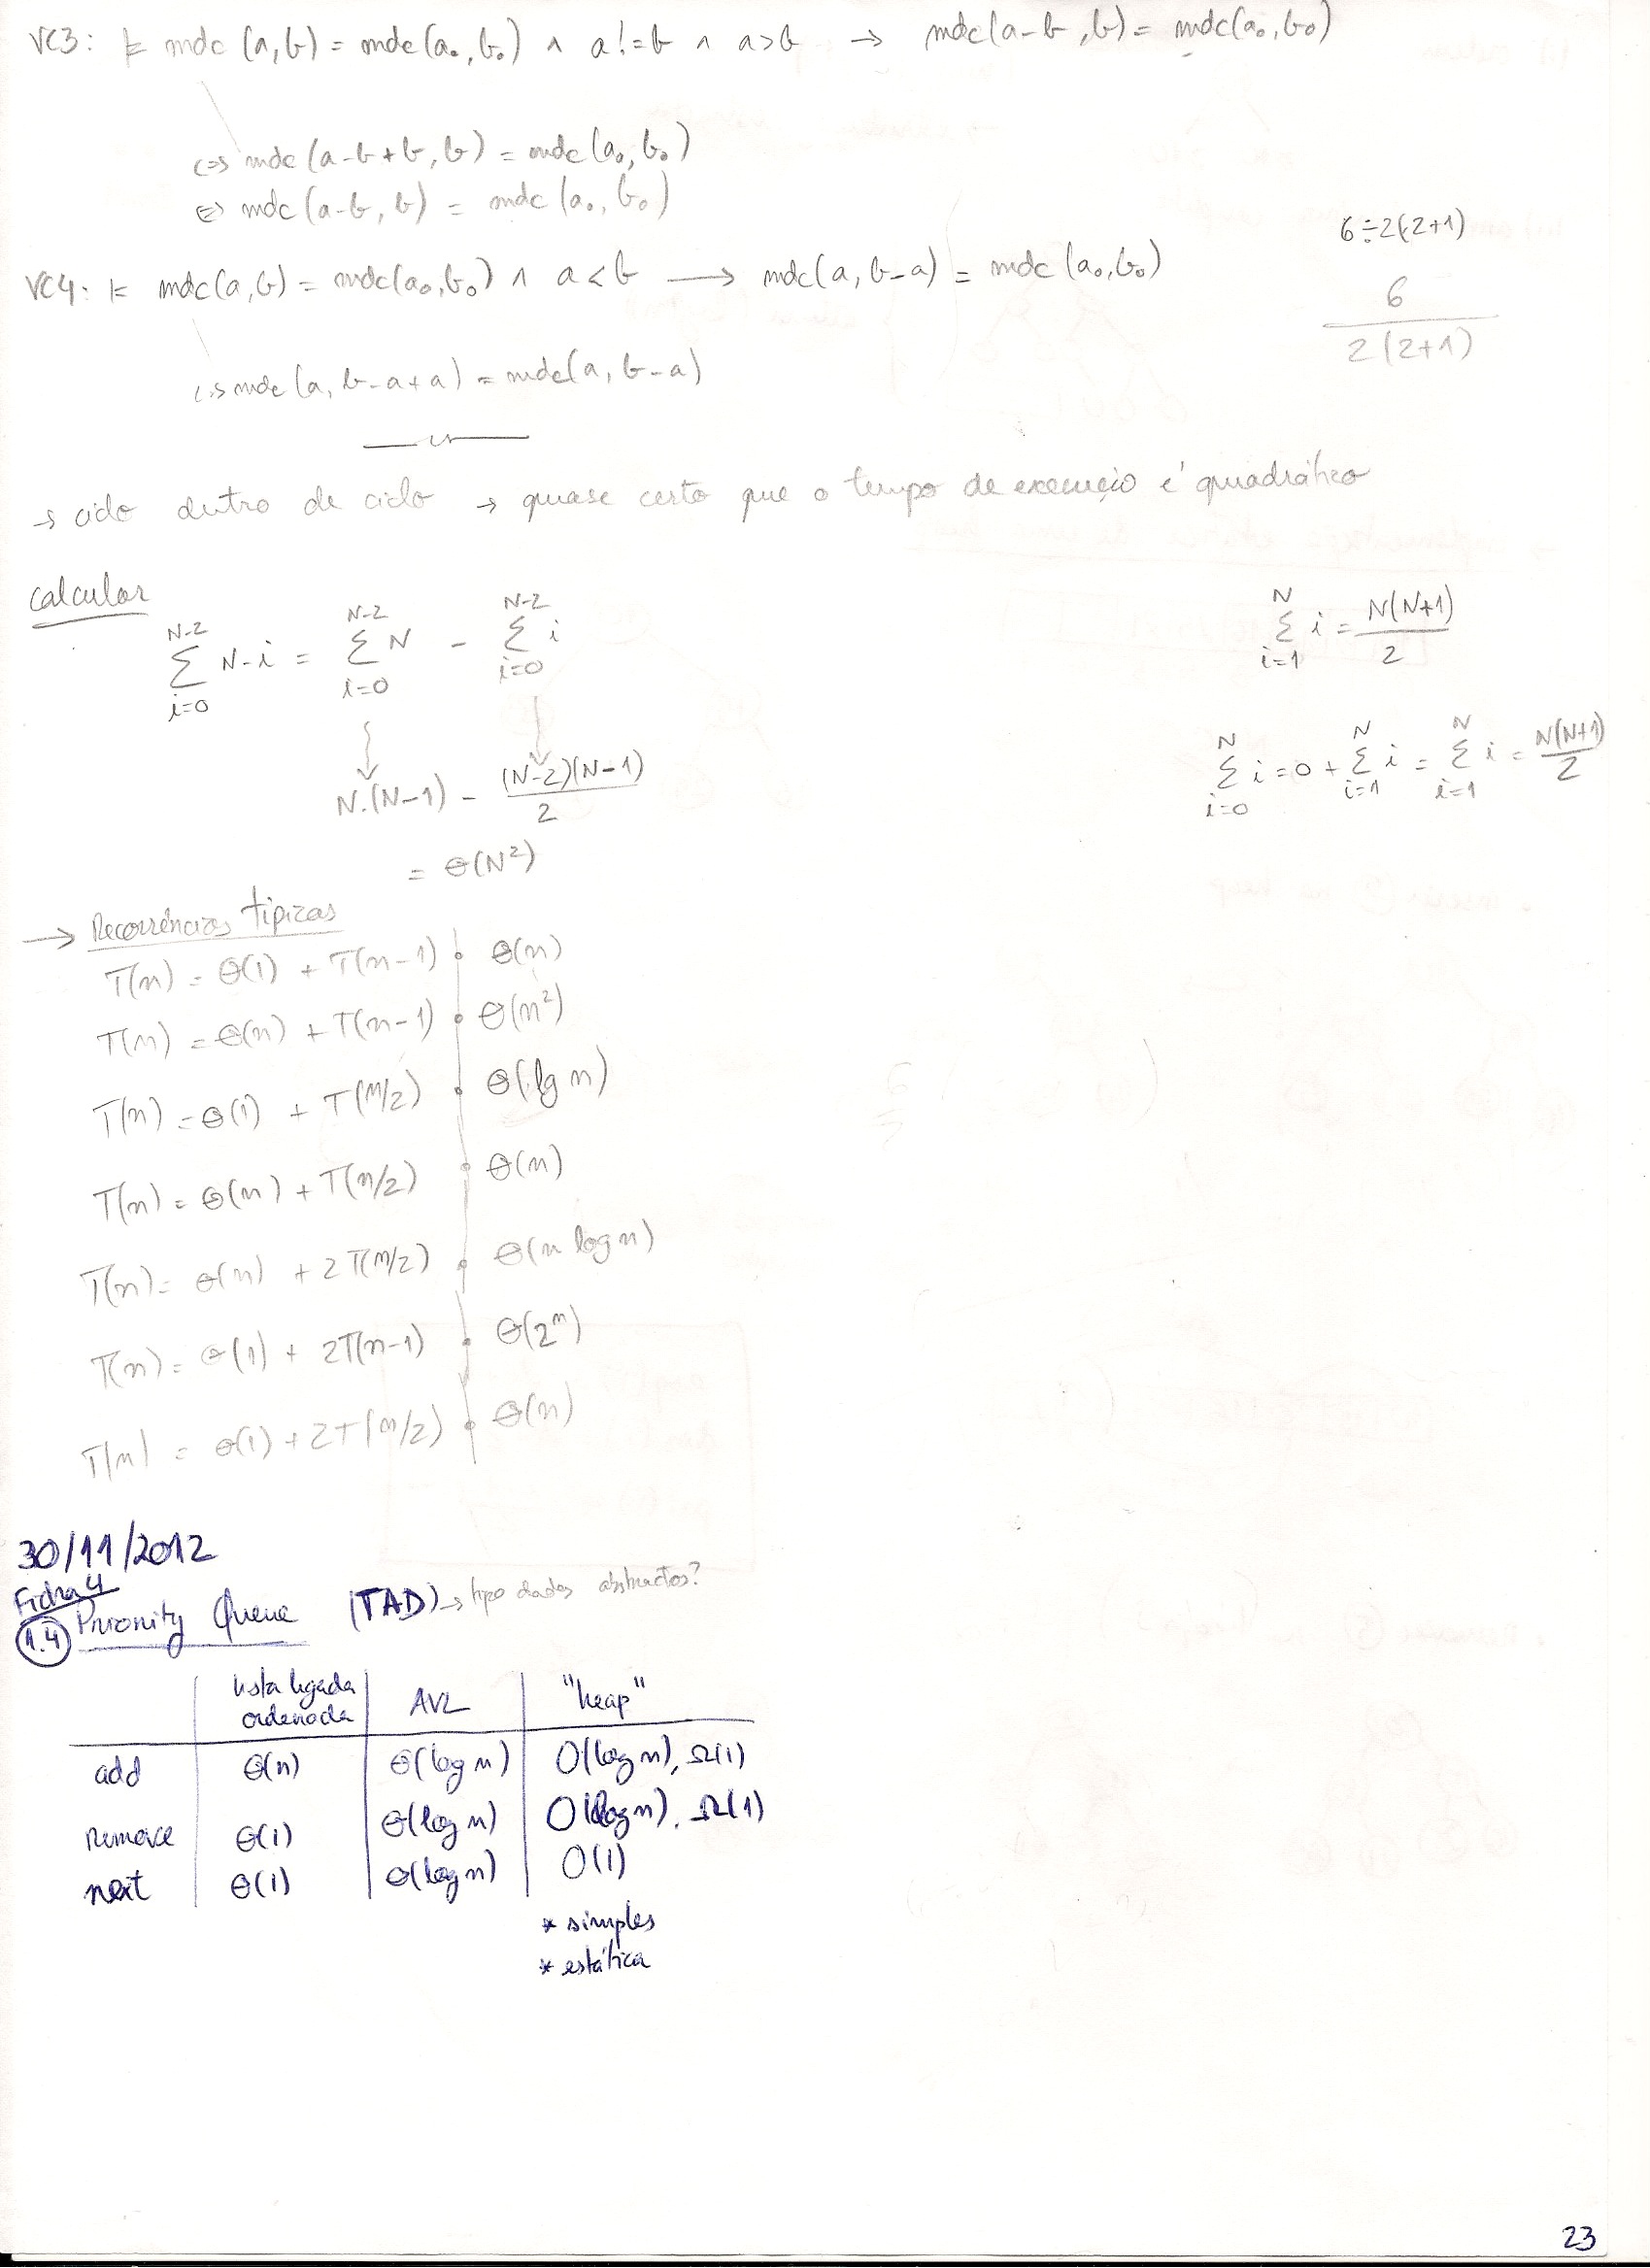 VC3: ⊨ mdc (a,b) = mdc(a₀,b₀) ∧ a!=b ∧ a>b → mdc(a-b,b) = mdc(a₀,b₀)
<=> mdc (a-b+b,b) = mdc(a₀,b₀)
<=> mdc(a-b,b) = mdc(a₀,b₀)
6÷2(2+1)
VC4: ⊨ mdc(a,b) = mdc(a₀,b₀) ∧ a<b → mdc(a,b-a) = mdc (a₀,b₀)
6
2(2+1)
<=> mdc(a, b-a+a) = mdc(a, b-a)
→ ciclo dentro de ciclo → quase certo que o tempo de execução é quadrático
calcular
∑_{i=0}^{N-2} N-i = ∑_{i=0}^{N-2} N - ∑_{i=0}^{N-2} i
∑_{i=1}^{N} i = N(N+1)/2
N.(N-1) - (N-2)(N-1)/2
∑_{i=0}^{N} i = 0 + ∑_{i=1}^{N} i = ∑_{i=1}^{N} i = N(N+1)/2
= Θ(N²)
→ Recorrências típicas
T(n) = Θ(1) + T(n-1) • Θ(n)
T(n) = Θ(n) + T(n-1) • Θ(n²)
T(n) = Θ(1) + T(n/2) • Θ(lg n)
T(n) = Θ(n) + T(n/2) • Θ(n)
T(n) = Θ(n) + 2T(n/2) • Θ(n log n)
T(n) = Θ(1) + 2T(n-1) • Θ(2ⁿ)
T(n) = Θ(1) + 2T(n/2) • Θ(n)
30/11/2012
Ficha 4
1.4 Priority Queue (TAD) → tipo dados abstractos?
lista ligada ordenada AVL "heap"
add Θ(n) Θ(log n) O(log n), Ω(1)
remove Θ(1) Θ(log n) O(log n), Ω(1)
next Θ(1) Θ(log n) O(1)
* simples
* estática
23